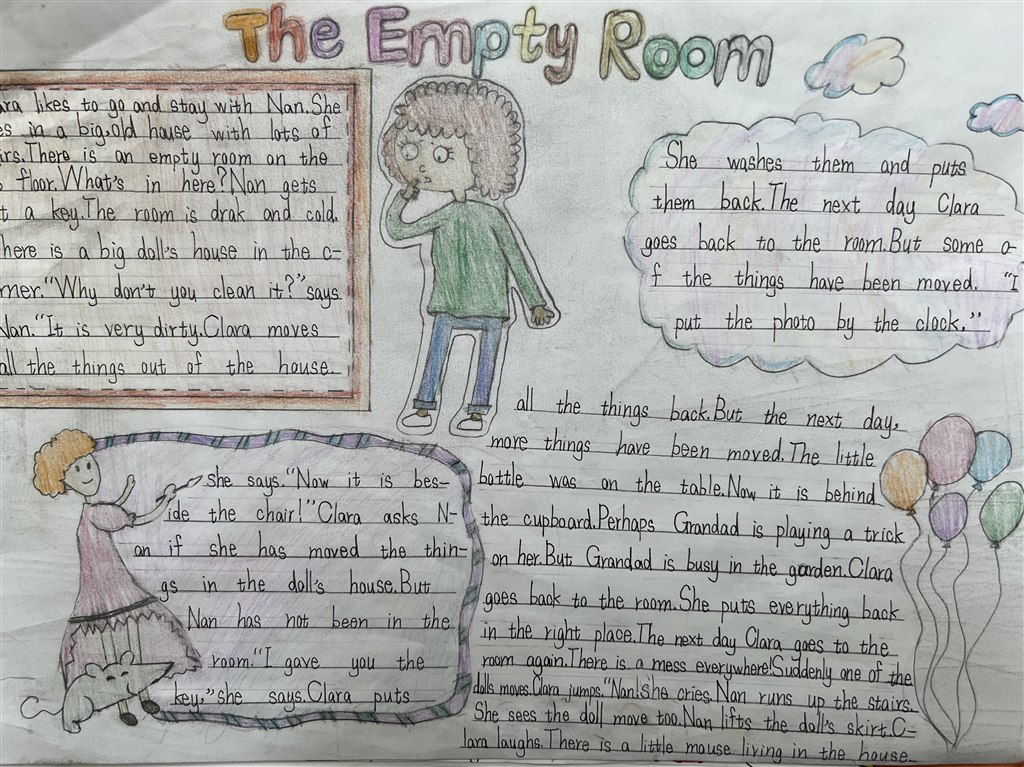 The Empty Room
ara likes to go and stay with Nan.She
es in a big,old house with lots of
irs.There is an empty room on the
floor.What's in here?Nan gets
t a key.The room is drak and cold.
here is a big doll's house in the c-
rner."Why don't you clean it?"says
Nan."It is very dirty.Clara moves
all the things out of the house.
She washes them and puts
them back.The next day Clara
goes back to the room.But some o-
f the things have been moved. "I
put the photo by the clock,"
she says."Now it is bes-
ide the chair!"Clara asks N-
an if she has moved the thin-
gs in the doll's house.But
Nan has not been in the
room."I gave you the
key,"she says.Clara puts
all the things back.But the next day,
more things have been moved.The little
bottle was on the table.Now it is behind
the cupboard.Perhaps Grandad is playing a trick
on her.But Grandad is busy in the garden.Clara
goes back to the room.She puts everything back
in the right place.The next day Clara goes to the
room again.There is a mess everywhere!Suddenly one of the
dolls moves.Clara jumps."Nan!She cries.Nan runs up the stairs.
She sees the doll move too.Nan lifts the doll's skirt.C-
lara laughs.There is a little mouse living in the house.